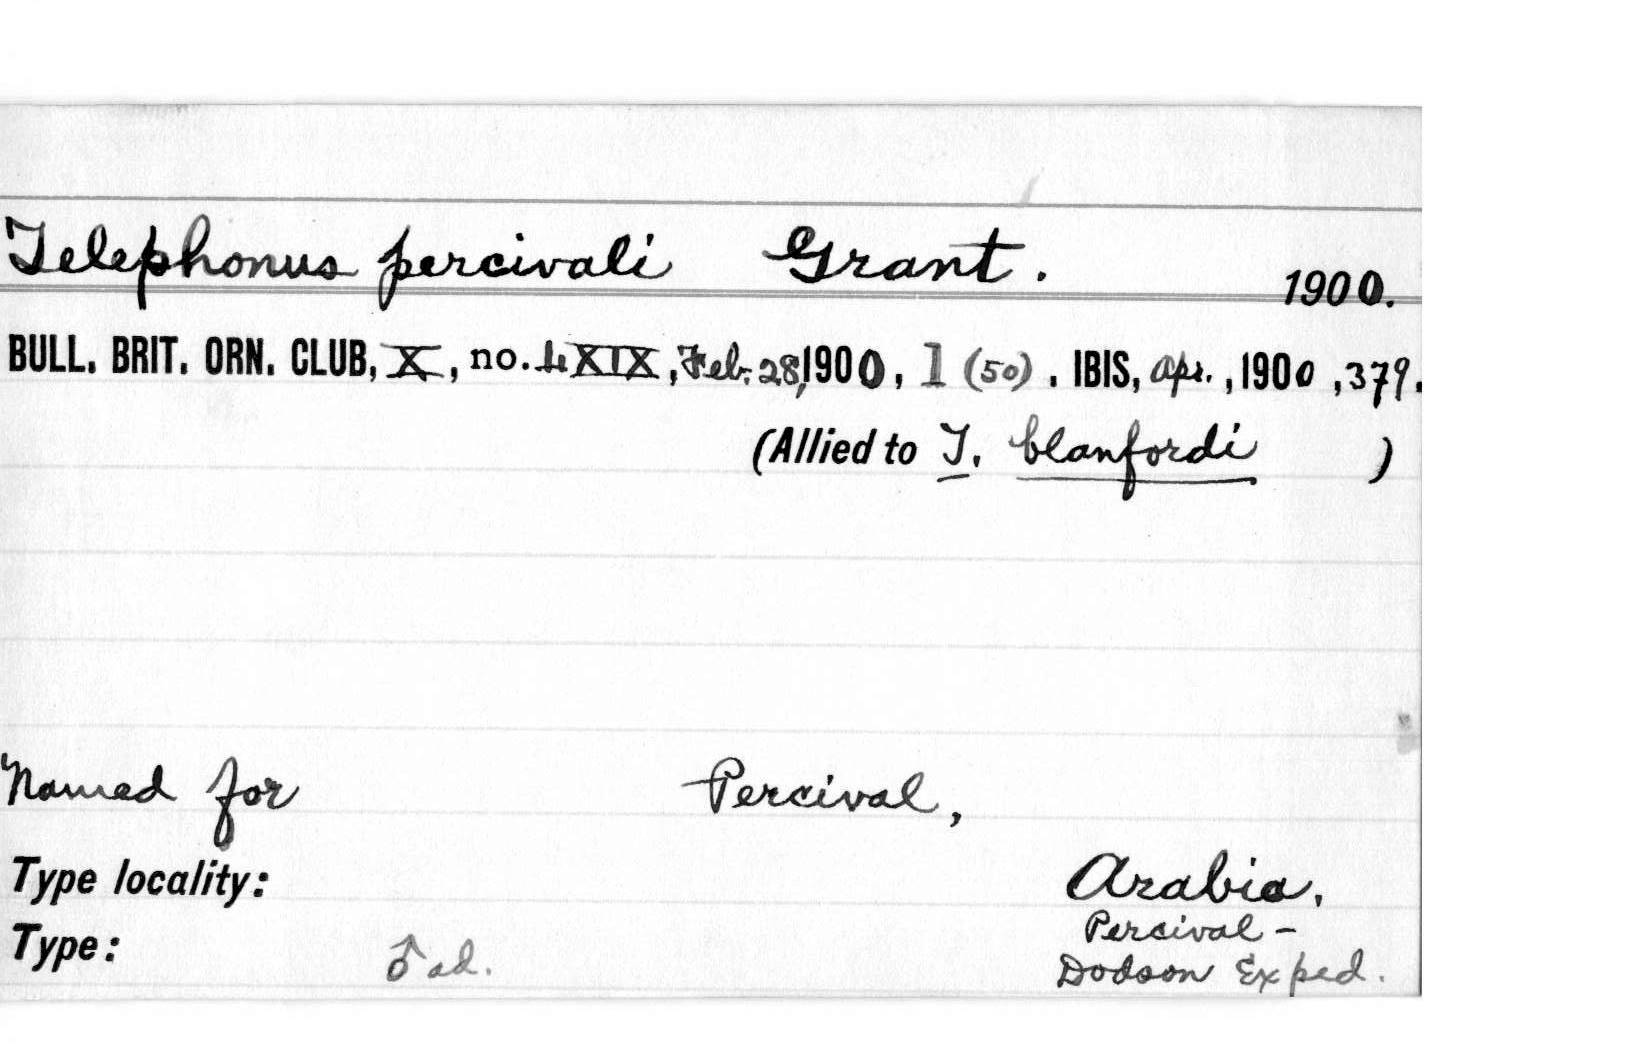 Telephonus percivali Grant. 1900.
BULL. BRIT. ORN. CLUB, X, no. LXXIX, Feb. 28, 1900, 1 (50). IBIS, Apr., 1900, 379.
(Allied to T. blanfordi )
Named for Percival,
Type locality: Arabia.
Percival-
Type: ♂ ad. Dodson Exped.